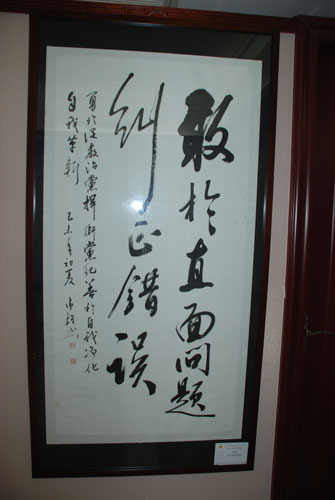 敢於直面問題
糾正錯誤
勇於從嚴治黨捍衛黨紀善於自我净化
自我革新
乙未年初夏